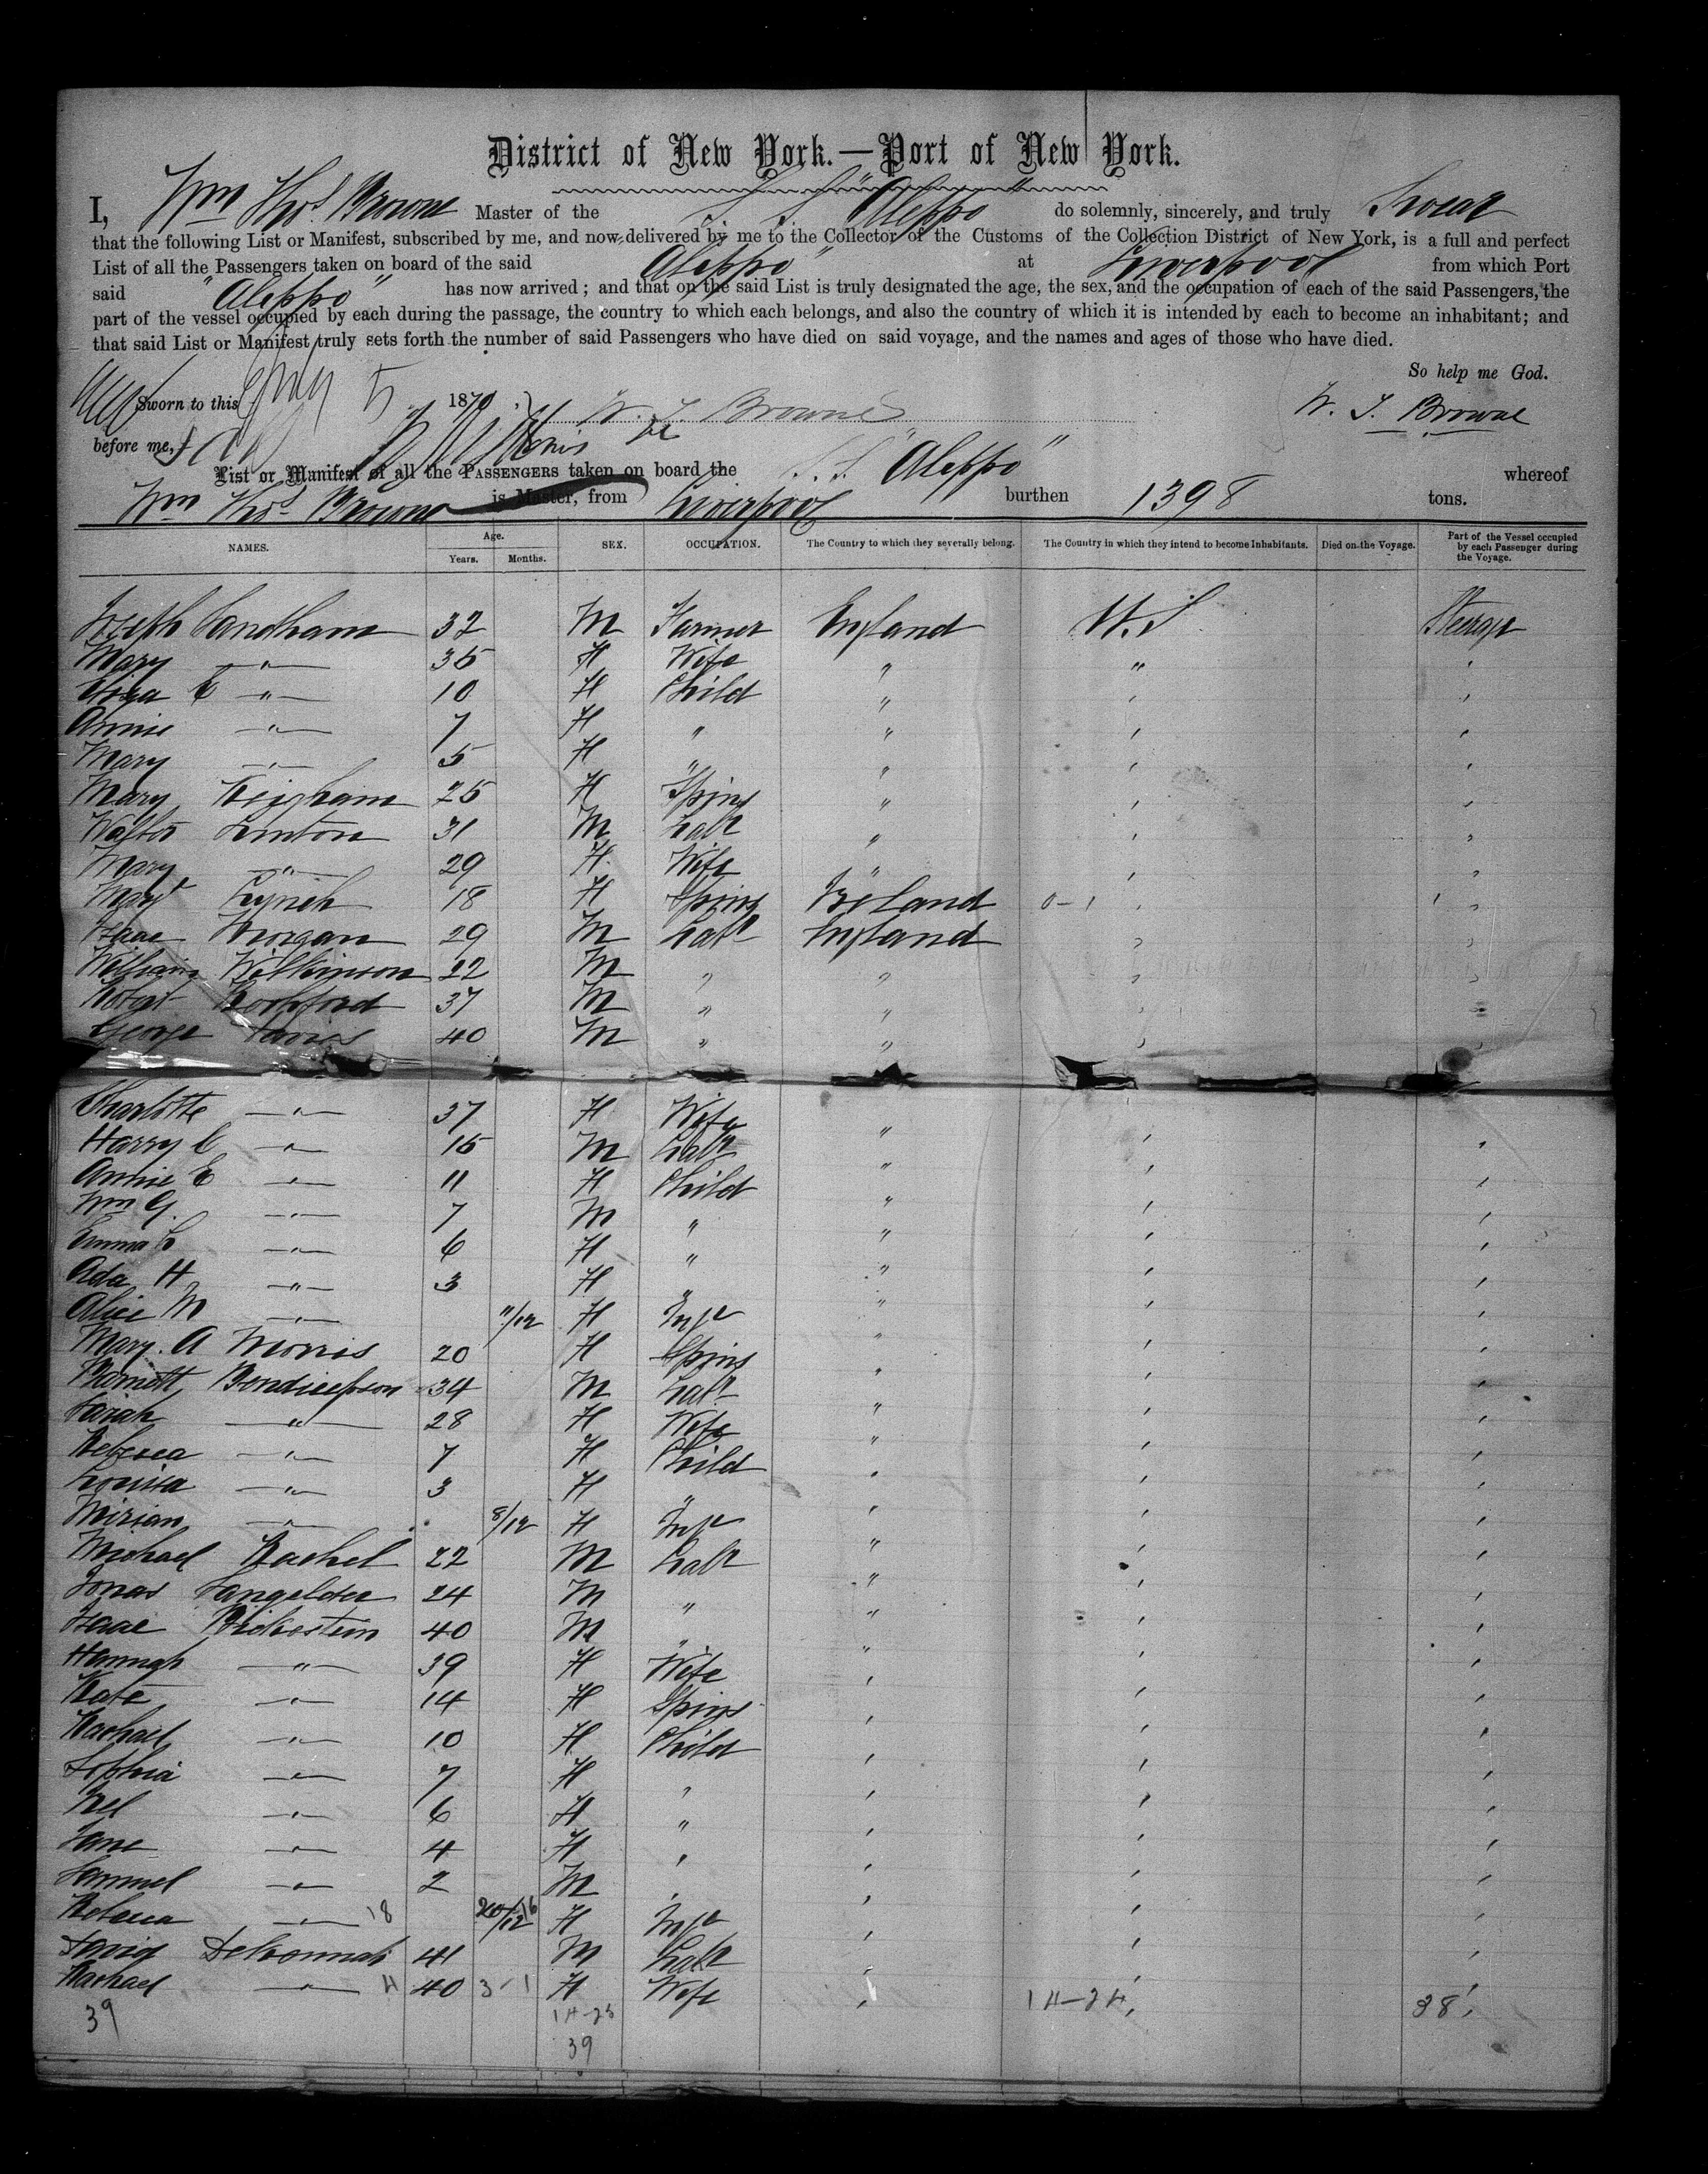 District of New York.—Port of New York.
I, Wm Thos. Browne Master of the S. S. "Aleppo" do solemnly, sincerely, and truly Swear
that the following List or Manifest, subscribed by me, and now delivered by me to the Collector of the Customs of the Collection District of New York, is a full and perfect
List of all the Passengers taken on board of the said "Aleppo" at Liverpool from which Port
said "Aleppo" has now arrived; and that on the said List is truly designated the age, the sex, and the occupation of each of the said Passengers, the
part of the vessel occupied by each during the passage, the country to which each belongs, and also the country of which it is intended by each to become an inhabitant; and
that said List or Manifest truly sets forth the number of said Passengers who have died on said voyage, and the names and ages of those who have died.
So help me God.
Sworn to this 5 1870 W. T. Browne W. T. Browne
before me,
List or Manifest of all the Passengers taken on board the S. S. "Aleppo" whereof
Wm Thos. Browne is Master, from Liverpool burthen 1398 tons.
NAMES. Age. Years. Months. SEX. OCCUPATION. The Country to which they severally belong. The Country in which they intend to become Inhabitants. Died on the Voyage. Part of the Vessel occupied by each Passenger during the Voyage.
Joseph Sandham 32 M Farmer England U.S Steerage
Mary " 35 F Wife " " "
Eliza E " 10 F Child " " "
Annie " 7 F " " " "
Mary " 5 F " " " "
Mary Keigham 25 F Spins " " "
Walter Linton 31 M Labr " " "
Mary " 29 F Wife " " "
Margt Lynch 18 F Spins Ireland 0-1 " 1 "
Isaac Morgan 29 M Labr England " "
William Wilkinson 22 M " " " "
Robert Rochford 37 M " " " "
George Davies 40 M " " " "
Charlotte " 37 F Wife " " "
Harry C " 15 M Labr " " "
Annie E " 11 F Child " " "
Wm G. " 7 M " " " "
Emma L " 6 F " " " "
Ada H " 3 F " " " "
Alice M " 11/12 F Inft " " "
Mary. A Morris 20 F Spins " " "
Barnett Bendicepson 34 M Labr " " "
Sarah " 28 F Wife " " "
Rebecca " 7 F Child " " "
Louisa " 3 F " " " "
Mirian " 8/12 F Inft " " "
Michael Rachel 22 M Labr " " "
Jonas Sangelder 24 M " " " "
Isaac 40 M " " " "
Hannah " 39 F Wife " " "
Kate " 14 F Spins " " "
Rachael " 10 F Child " " "
Sophia " 7 F " " " "
" 6 F " " " "
Jane " 4 F " " " "
Samuel " 2 M " " " "
Rebecca " 18 /12 F Inft " " "
David 41 M Labr " " "
Rachael " 4 40 3-1 F Wife " 14-24 " 38 "
39 14-25
39